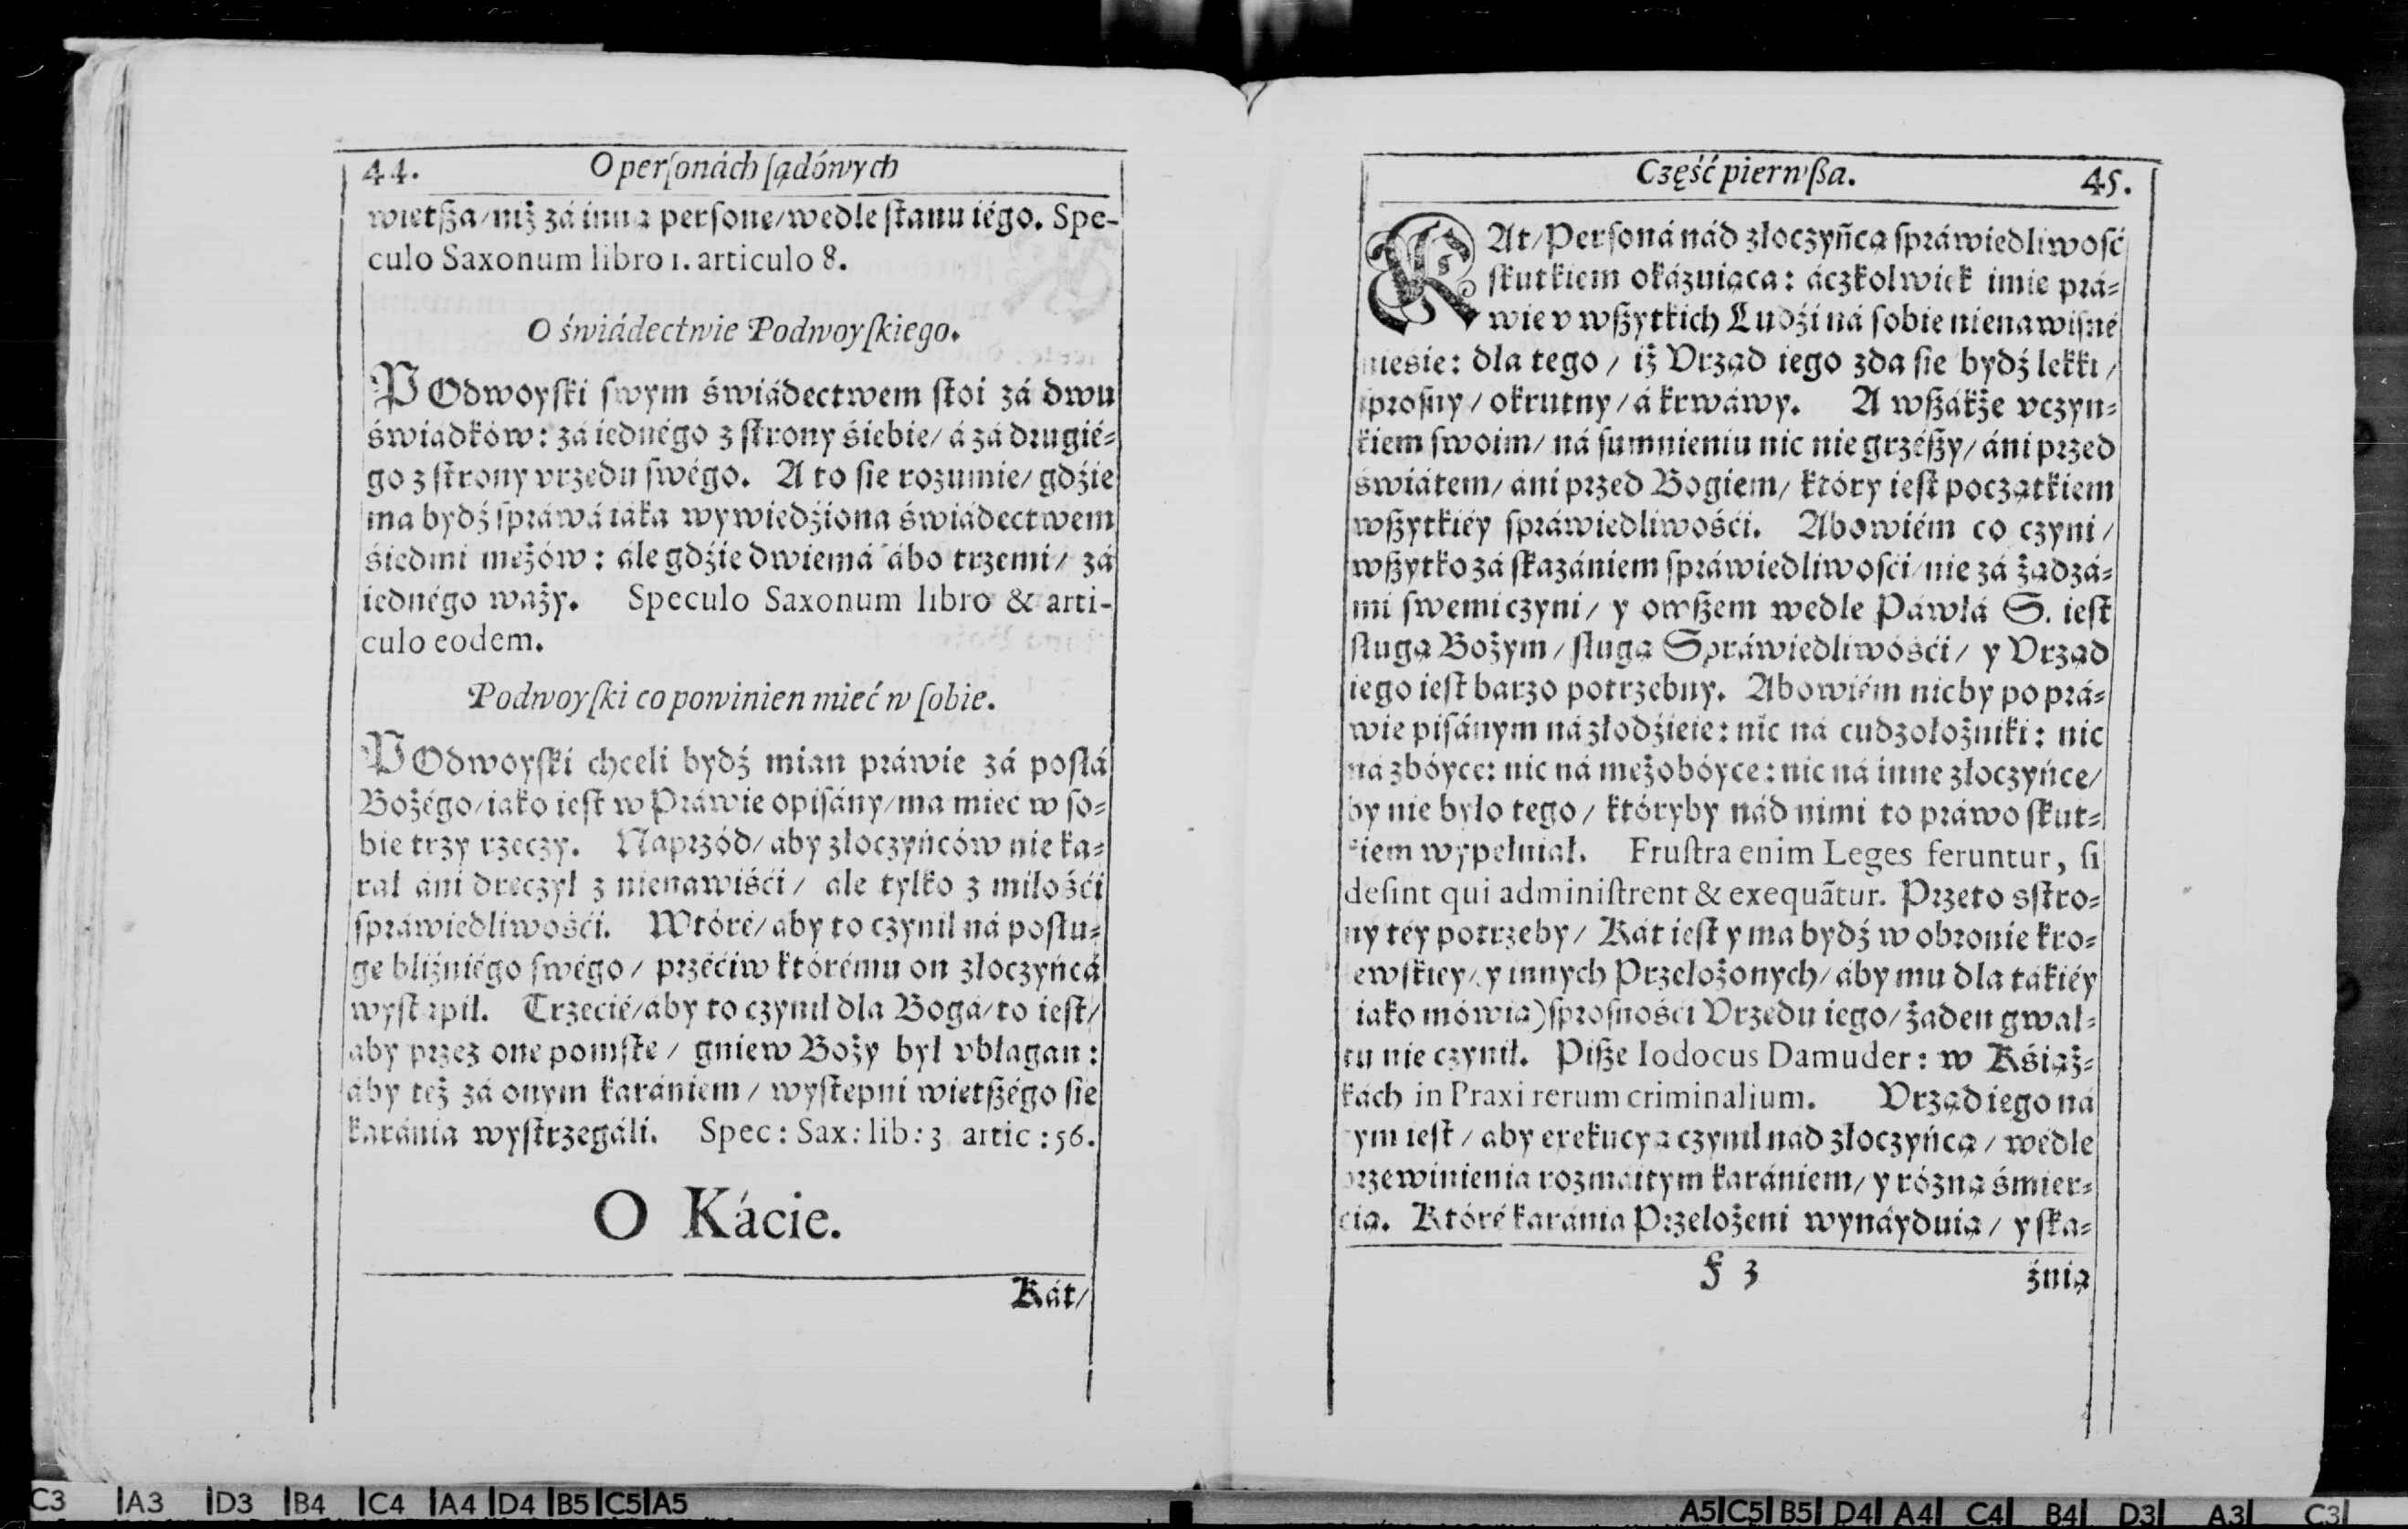 44. O perſonách ſądówych
wietßa/niż zá inną perſone/wedle ſtanu iégo. Spe-
culo Saxonum libro 1. articulo 8.
O świádectwie Podwoyſkiego.
POdwoyſki ſwym świádectwem ſtoi zá dwu
świadków: zá iednégo z ſtrony śiebie/ á zá drugié-
go z ſtrony vrzedu ſwégo. A to ſie rozumie/ gdźie
ma bydź ſpráwá táka wywiedźiona świádectwem
śiedmi meżów: ále gdźie dwiemá ábo trzemi/ zá
iednégo waży. Speculo Saxonum libro & arti-
culo eodem.
Podwoyſki co powinien mieć w ſobie.
POdwoyſki chceli bydź mian práwie zá poſłá
Bożégo/iáko ieſt w Práwie opiſány/ma mieć w ſo-
bie trzy rzeczy. Naprzód/ aby złoczyńców nie ka-
rał áni dreczył z nienawiśći/ ale tylko z miłośći
ſpráwiedliwośći. Wtóré/ aby to czynił ná poſłu-
ge bliźniégo ſwégo/ przéćiw którému on złoczyńcá
wyſtąpił. Trzecié/aby to czynił dla Bogá/to ieſt/
aby przez one pomſte/ gniew Boży był vbłagan:
áby też zá onym karániem/ wyſtepni wietßégo ſie
karánia wyſtrzegáli. Spec: Sax: lib: 3 artic: 56.
O Kácie.
Kát/
Część pierwßa. 45.
KAt/Perſoná nád złoczyńcą ſpráwiedliwość
ſkutkiem okázuiąca: áczkolwiek imie prá-
wie v wßytkich Ludźi ná ſobie nienawiſné
nieśie: dla tego/ iż Vrząd iego zda ſie bydź lekki/
ſproſny/ okrutny/ á krwáwy. A wßákże vczyn-
kiem ſwoim/ ná ſumnieniu nic nie grzéßy/ áni przed
świátem/ áni przed Bogiem/ który ieſt początkiem
wßytkiéy ſpráwiedliwośći. Abowiém co czyni/
wßytko zá ſkazániem ſpráwiedliwośći/nie zá żądzá-
mi ſwemi czyni/ y owßem wedle Páwłá S. ieſt
ſługą Bożym/ ſługą Spráwiedliwośći/ y Vrząd
iego ieſt barzo potrzebny. Abowiém nic by po prá-
wie piſánym ná złodźieie: nic ná cudzołożniki: nic
ná zbóyce: nic ná meżobóyce: nic ná inne złoczyńce/
by nie było tego/ któryby nád nimi to práwo ſkut-
kiem wypełniał. Fruſtra enim Leges feruntur, ſi
deſint qui adminiſtrent & exequãtur. Przeto sſtro-
ny téy potrzeby/ Kát ieſt y ma bydź w obronie kro-
lewſkiey/ y innych Przełożonych/ áby mu dla tákiéy
iako mówią) ſproſnośći Vrzedu iego/ żaden gwał-
tu nie czynił. Piße Iodocus Damuder: w Kśiąż-
kách in Praxi rerum criminalium. Vrząd iego ná
tym ieſt/ aby exekucyą czynił nad złoczyńcą/ wedle
przewinienia rozmaitym karániem/ y rózną śmier-
cią. Któré karánia Przełożeni wynáyduią/ y ſka-
F 3 źnią
C3 A3 D3 B4 C4 A4 D4 B5 C5 A5
A5 C5 B5 D4 A4 C4 B4 D3 A3 C3